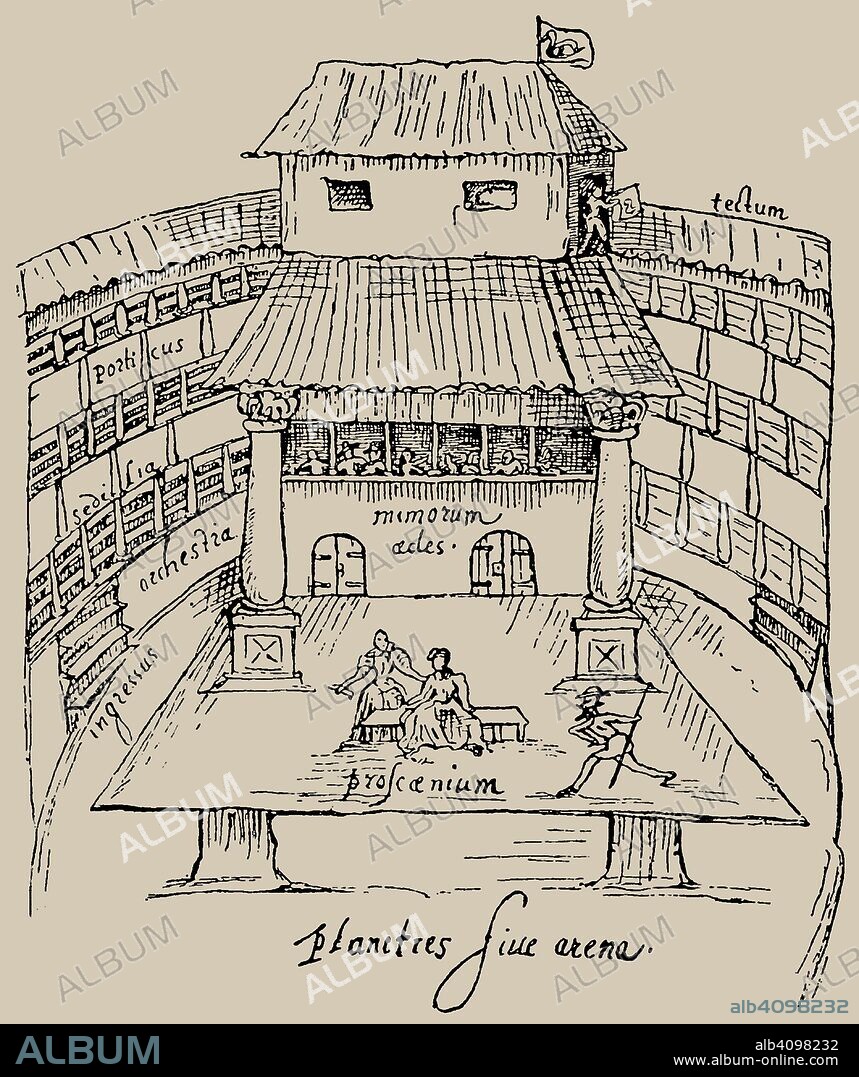 tectum
porticus
sedilia
orchestra
mimorum
ædes.
ingressus
proscænium
planities siue arena.
ALBUM
alb4098232
ALBUM
alb4098232
www.album-online.com